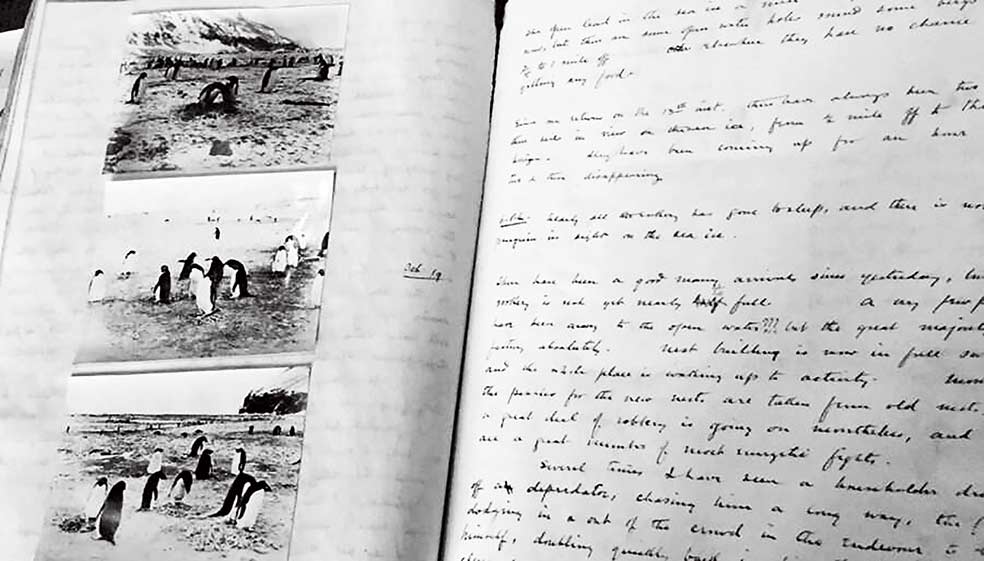 Oct 19
open lead in the sea ice a mile
but there are some open water holes round some bergs
½ to 1 mile off elsewhere they have no chance
getting any food.
Since our return on the 13th inst. there have always been two
in view on the sea ice, from ½ mile off to the
They have been coming up for an hour
then disappearing
nearly all have gone to sleep, and there is not
penguin in sight on the sea ice.
There have been a good many arrivals since yesterday, but
rookery is not yet nearly half full. A very few
have been away to the open water??? but the great majority
fasting absolutely. Nest building is now in full
and the whole place is waking up to activity. Most
the pebbles for the new nests are taken from old nests,
a great deal of robbery is going on nonetheless, and
are a great number of most energetic fights.
Several times I have seen a householder
off a depredator, chasing him a long way, the
dodging in & out of the crowd in the endeavour to
himself, doubling quickly back